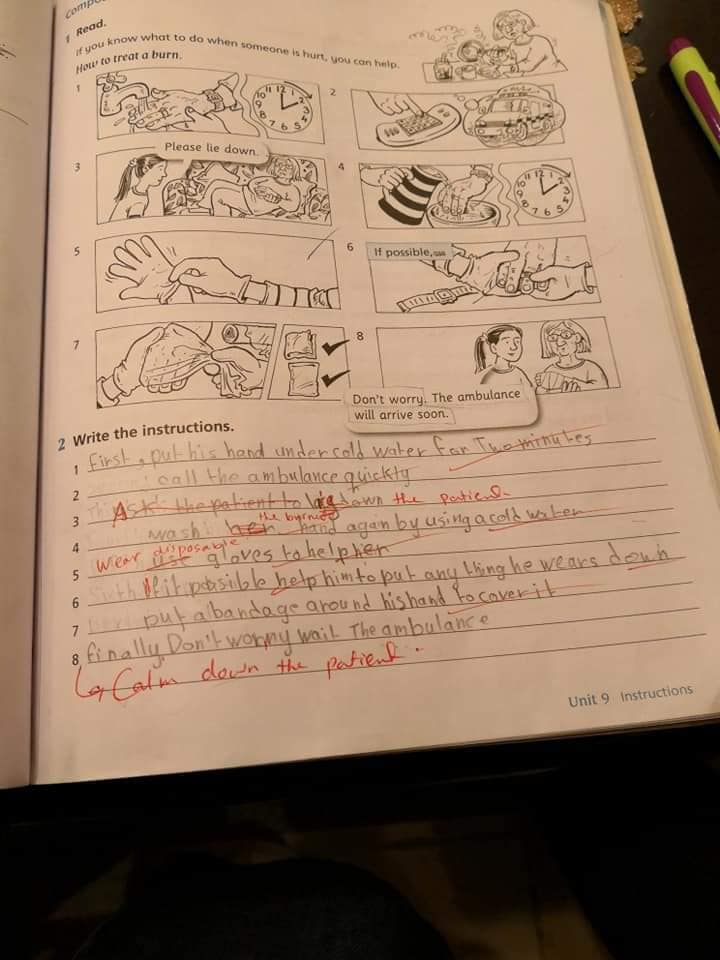 1 Read.
If you know what to do when someone is hurt, you can help.
How to treat a burn.
1
2
Please lie down.
3
4
5
6 If possible,
7
8
Don't worry. The ambulance
will arrive soon.
2 Write the instructions.
1 First, put his hand under cold water for Two minutes
2 call the ambulance quickty
3 Ask the patient to down the patient
the
4 wash hand again by using a cold water
disposable
5 wear use gloves to help her
6 If it possible help him to put any thing he wears down
7 put a bandage around his hand to cover it
8 finally, Don't worry wait The ambulance
Calm down the patient.
Unit 9 Instructions